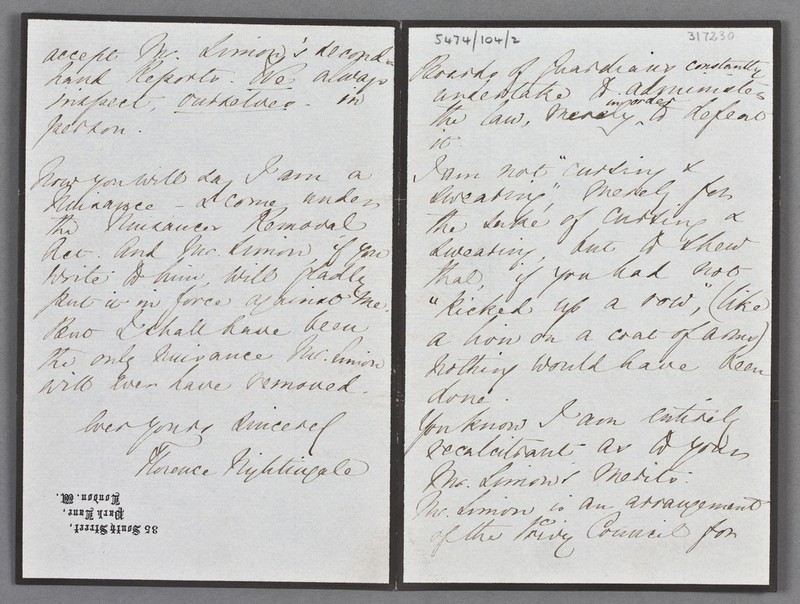 accept Mr. Simon's second-
hand Reports. We always
inspect, ourselves - in
person.
Now you will say I am a
Nuisance - I come under
the Nuisances Removal
Act. And Mr. Simon, if you
write to him, will gladly
put it in force against me.
But I shall have been
the only nuisance Mr. Simon
will ever have removed.
ever yours sincerely
Florence Nightingale
35 South Street,
Park Lane,
London. W.
5474/104/2
317230
Boards of Guardians constantly
undertake to administer
the law, merely in order to defeat
it.
I am not "cursing &
swearing," merely for
the sake of cursing &
swearing, but to shew
that, if you had not
"kicked up a row", (like
a lion on a coat of arms)
nothing would have been
done.
You know I am entirely
recalcitrant as to your
Mr. Simon's merits.
Mr. Simon is an arrangement
of the Privy Council for